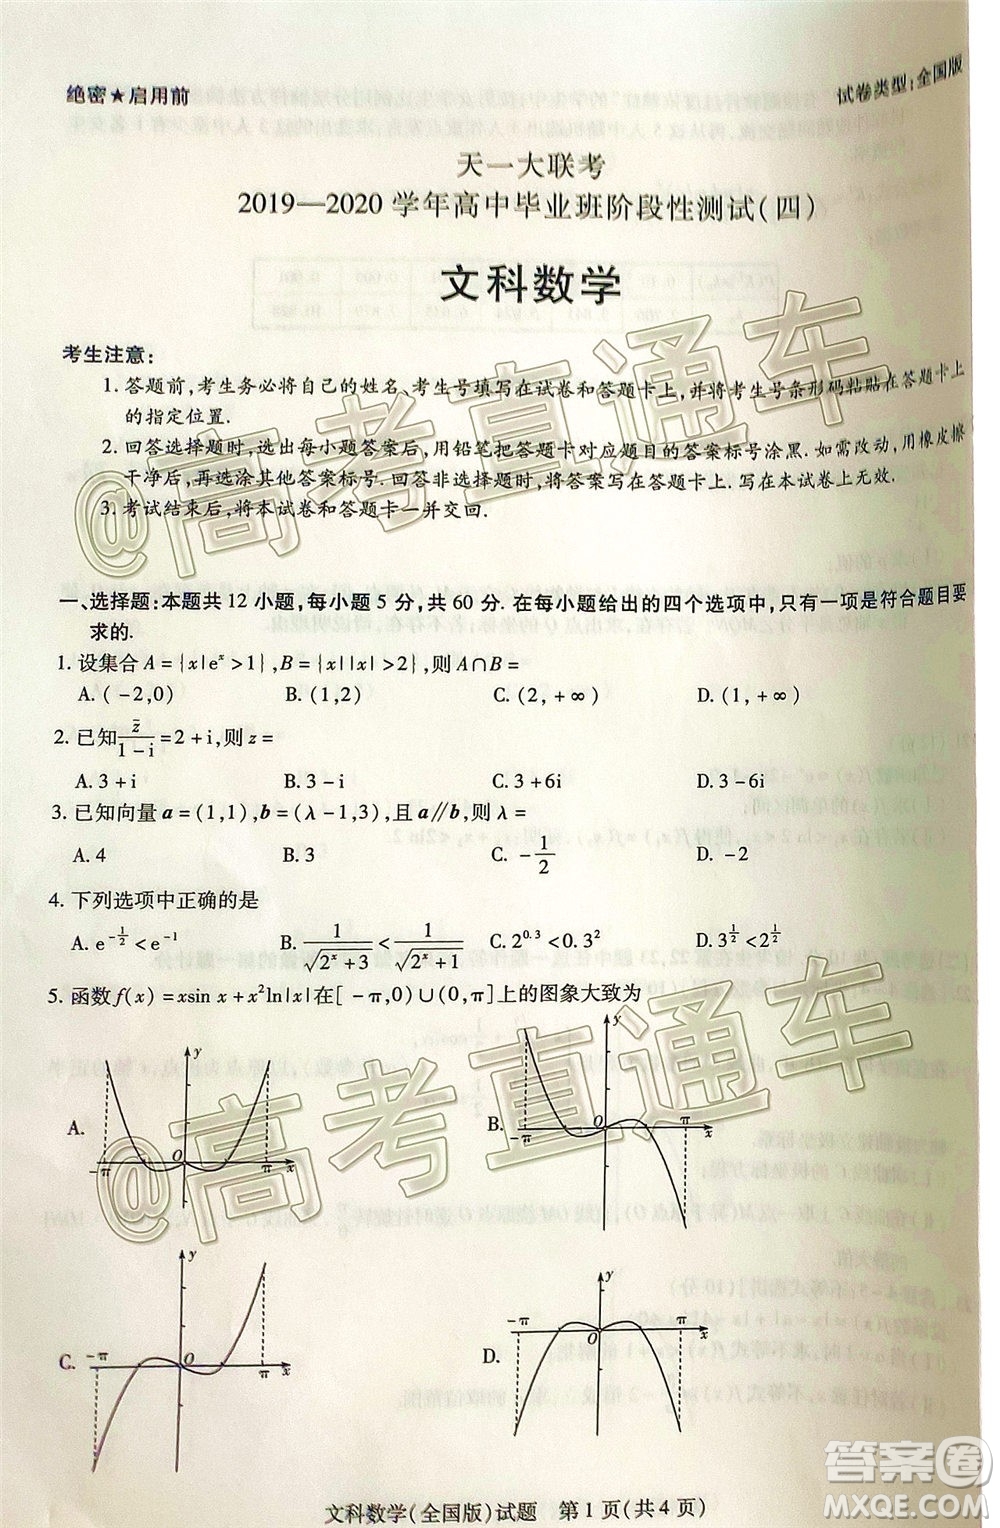 绝密★启用前
试卷类型:全国版
天一大联考
2019—2020学年高中毕业班阶段性测试(四)
文科数学
考生注意:
1. 答题前,考生务必将自己的姓名、考生号填写在试卷和答题卡上,并将考生号条形码粘贴在答题卡上
的指定位置.
2. 回答选择题时,选出每小题答案后,用铅笔把答题卡对应题目的答案标号涂黑. 如需改动,用橡皮擦
干净后,再选涂其他答案标号. 回答非选择题时,将答案写在答题卡上. 写在本试卷上无效.
3. 考试结束后,将本试卷和答题卡一并交回.
一、选择题:本题共12小题,每小题5分,共60分. 在每小题给出的四个选项中,只有一项是符合题目要
求的.
1. 设集合 A={x|e^x>1},B={x||x|>2},则 A∩B=
A. (-2,0) B. (1,2) C. (2,+∞) D. (1,+∞)
2. 已知 z̄/(1-i)=2+i,则 z=
A. 3+i B. 3-i C. 3+6i D. 3-6i
3. 已知向量 a=(1,1),b=(λ-1,3),且 a∥b,则 λ=
A. 4 B. 3 C. -1/2 D. -2
4. 下列选项中正确的是
A. e^(-1/2)<e^(-1) B. 1/√(2^x+3)<1/√(2^x+1) C. 2^0.3<0.3^2 D. 3^(1/2)<2^(1/2)
5. 函数 f(x)=xsin x+x²ln|x|在[-π,0)∪(0,π]上的图象大致为
A. y -π O π x
B. y -π O π x
C. y -π O π x
D. y -π O π x
@高考直通车
@高考直通车
文科数学(全国版)试题 第1页(共4页)
答案圈
MXQE.COM